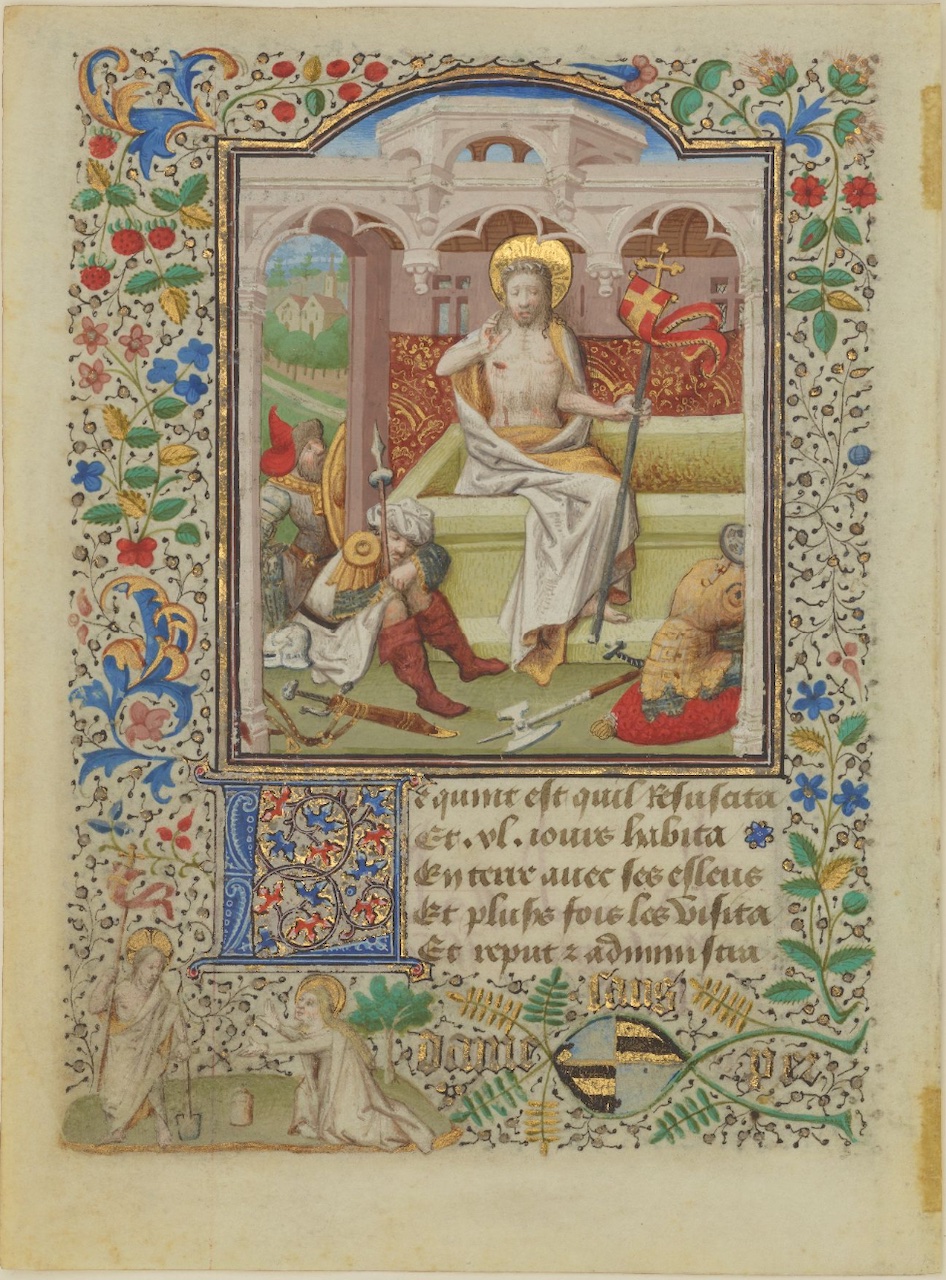 Le quint est quil Resuscita
Et .xl. iours habita
En terre auec ses esleus
Et plusrs fois les visita
Et reput z administra
sans
per